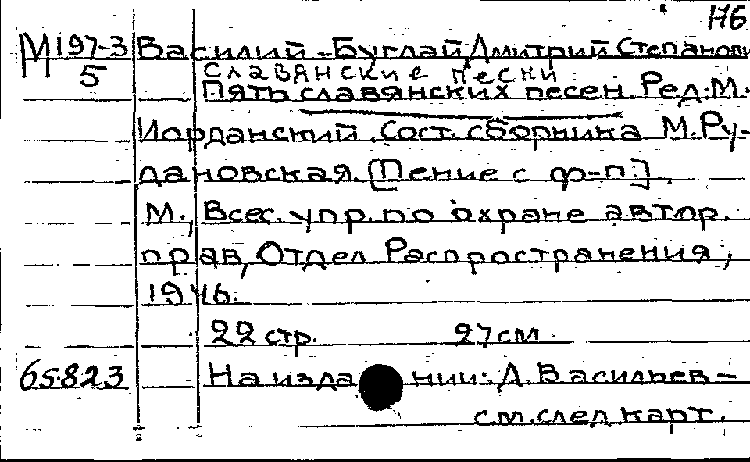 176
М197-3 Василий-Буглай, Дмитрий Степанови
5 Славянские песни
Пять славянских песен. Ред. М.
Иорданский. Сост. сборника М. Ру-
дановская. [Пение с ф-п.].
М., Всес. упр. по охране автор.
прав, Отдел Распространения,
1946.
22 стр. 27 см.
65.823 На издании: Д. Васильев-
см. след. карт.